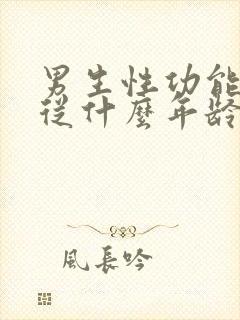 男生性功能
從什麼年龄
風長吟